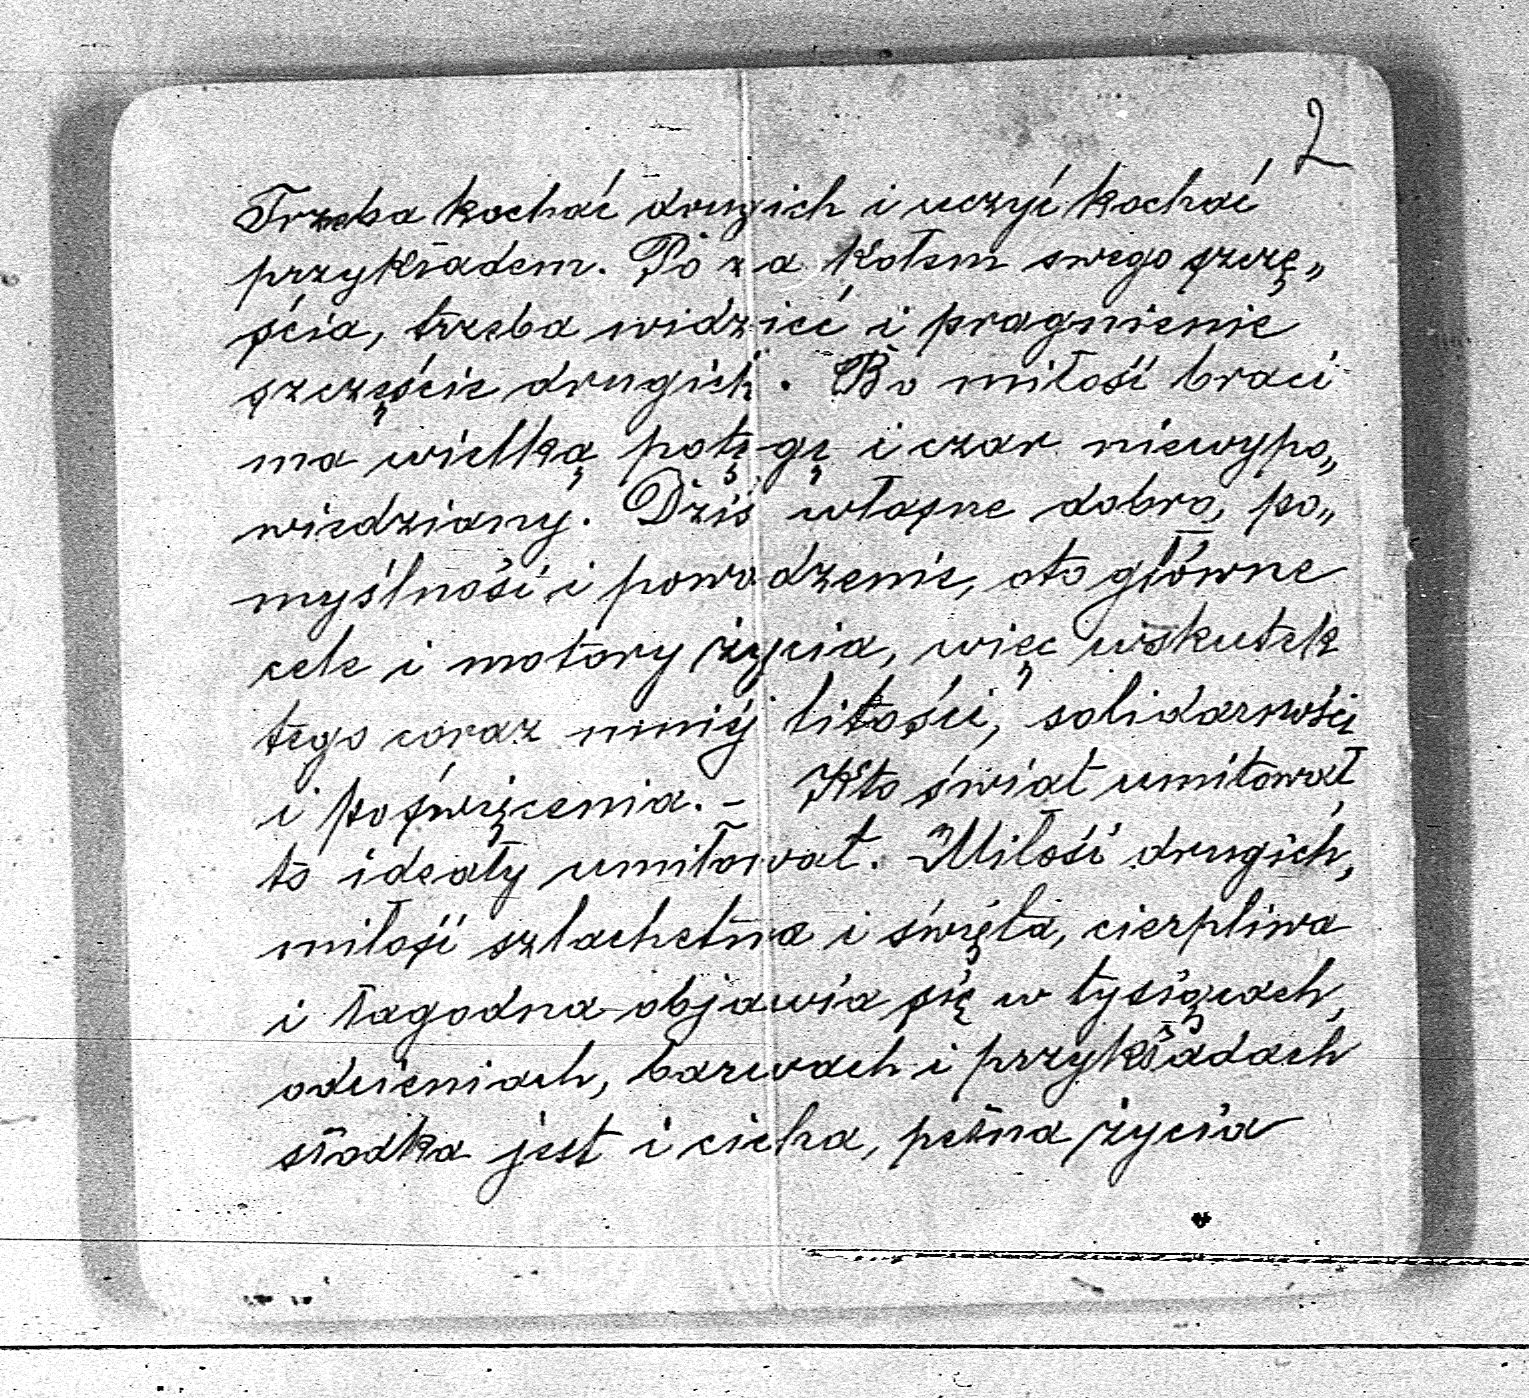 2
Trzeba kochać drugich i uczyć kochać
przykładem. Po za kołem swego szczę„
ścia, trzeba widzieć i pragnienie
szczęście drugich. Bo miłość braci
ma wielką potęgę i czar niewypo„
wiedziany. Dziś własne dobro, po„
myślność i powodzenie, oto główne
cele i motory życia, więc wskutek
tego coraz mniej litości, solidarności
i poświęcenia. – Kto świat umiłował,
to ideały umiłował. Miłość drugich,
miłość szlachetna i święta, cierpliwa
i łagodna objawia się w tysiącach,
odcieniach, barwach i przykładach
słodka jest i cicha, pełna życia